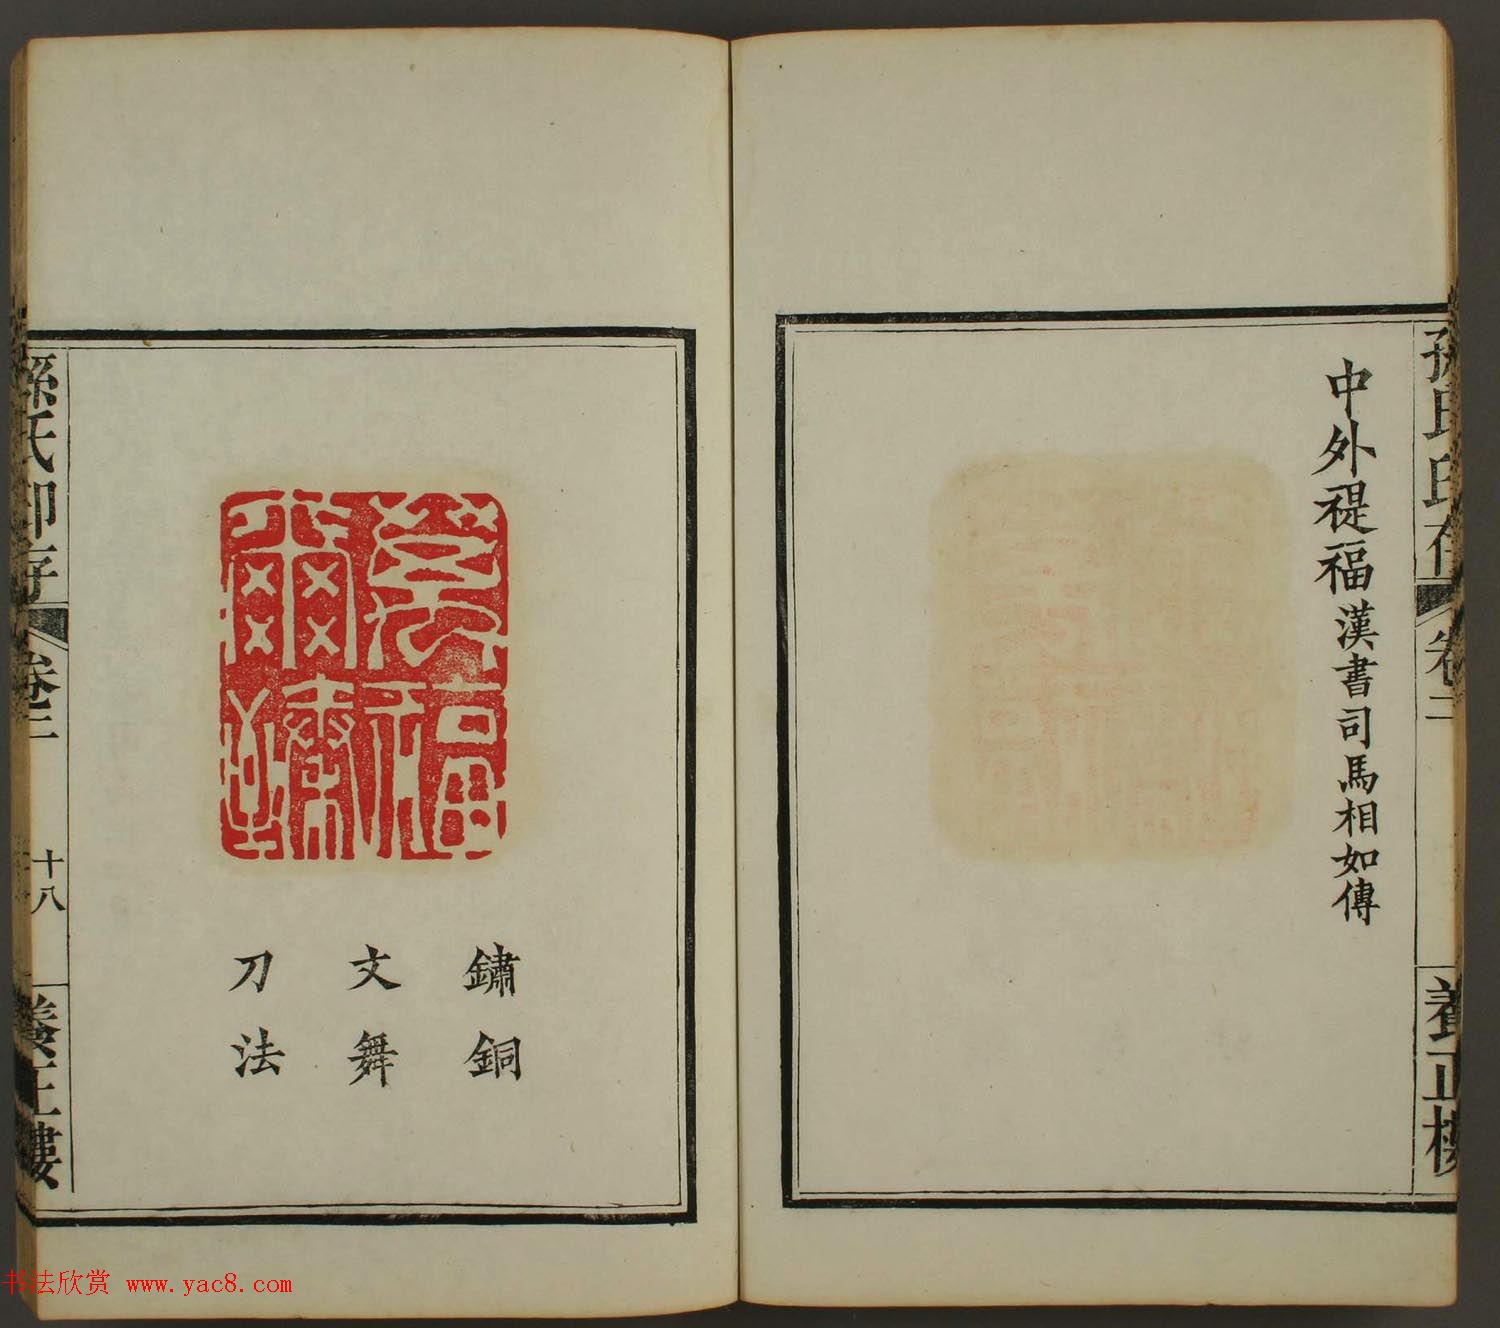 孫氏印存 卷二 養正樓
中外禔福漢書司馬相如傳
福
爾臻
鏽銅
文舞
刀法
孫氏印存 卷二 十八 養正樓
书法欣赏 www.yac8.com